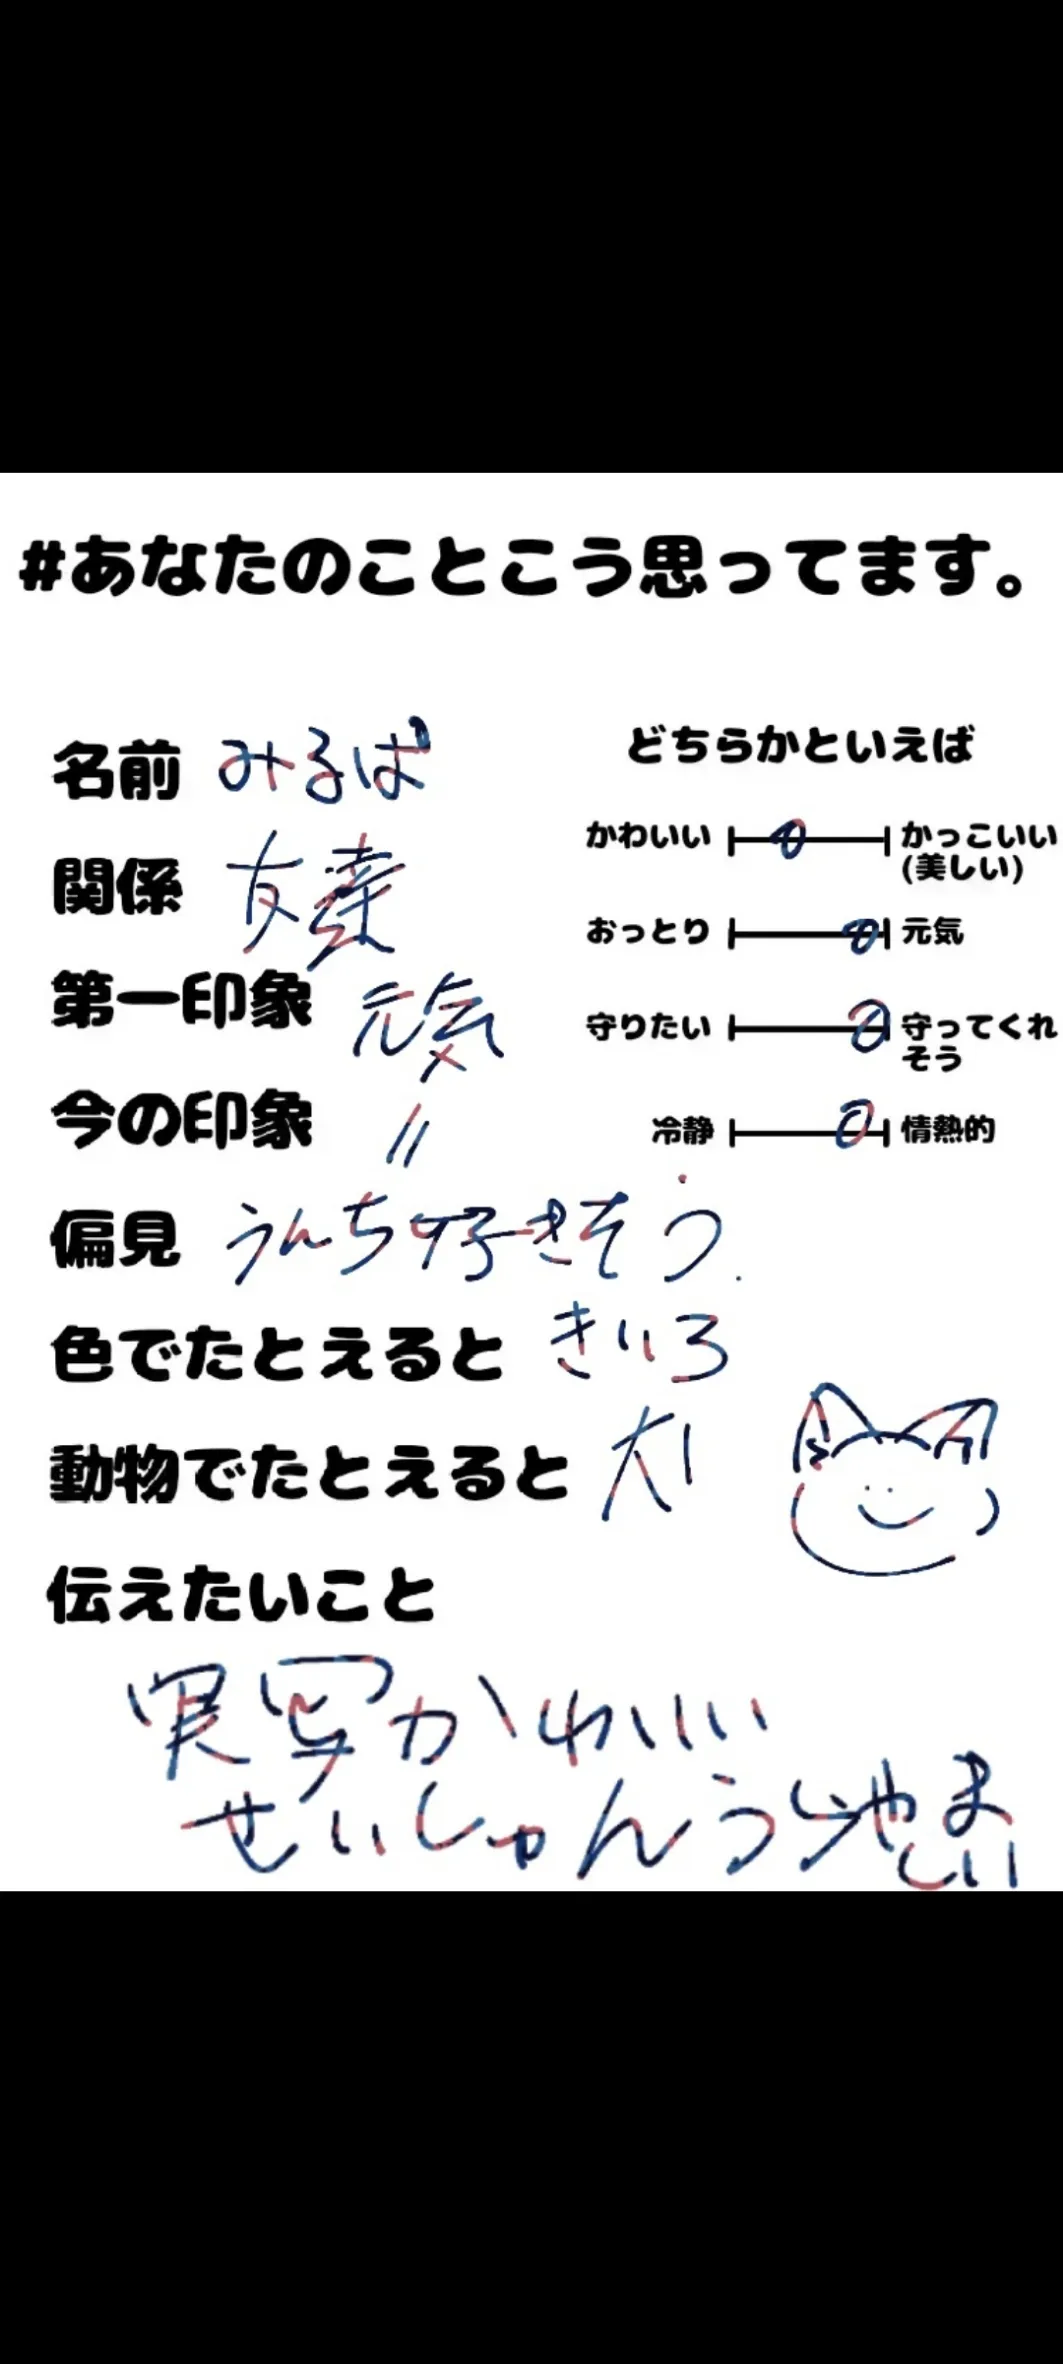 #あなたのことこう思ってます。
名前 みるぱ
関係 友達
第一印象 元気
今の印象 〃
偏見 うんち好きそう
色でたとえると きいろ
動物でたとえると 犬
伝えたいこと
実写かわいい
せいしゅんうらやましい
どちらかといえば
かわいい かっこいい
(美しい)
おっとり 元気
守りたい 守ってくれ
そう
冷静 情熱的